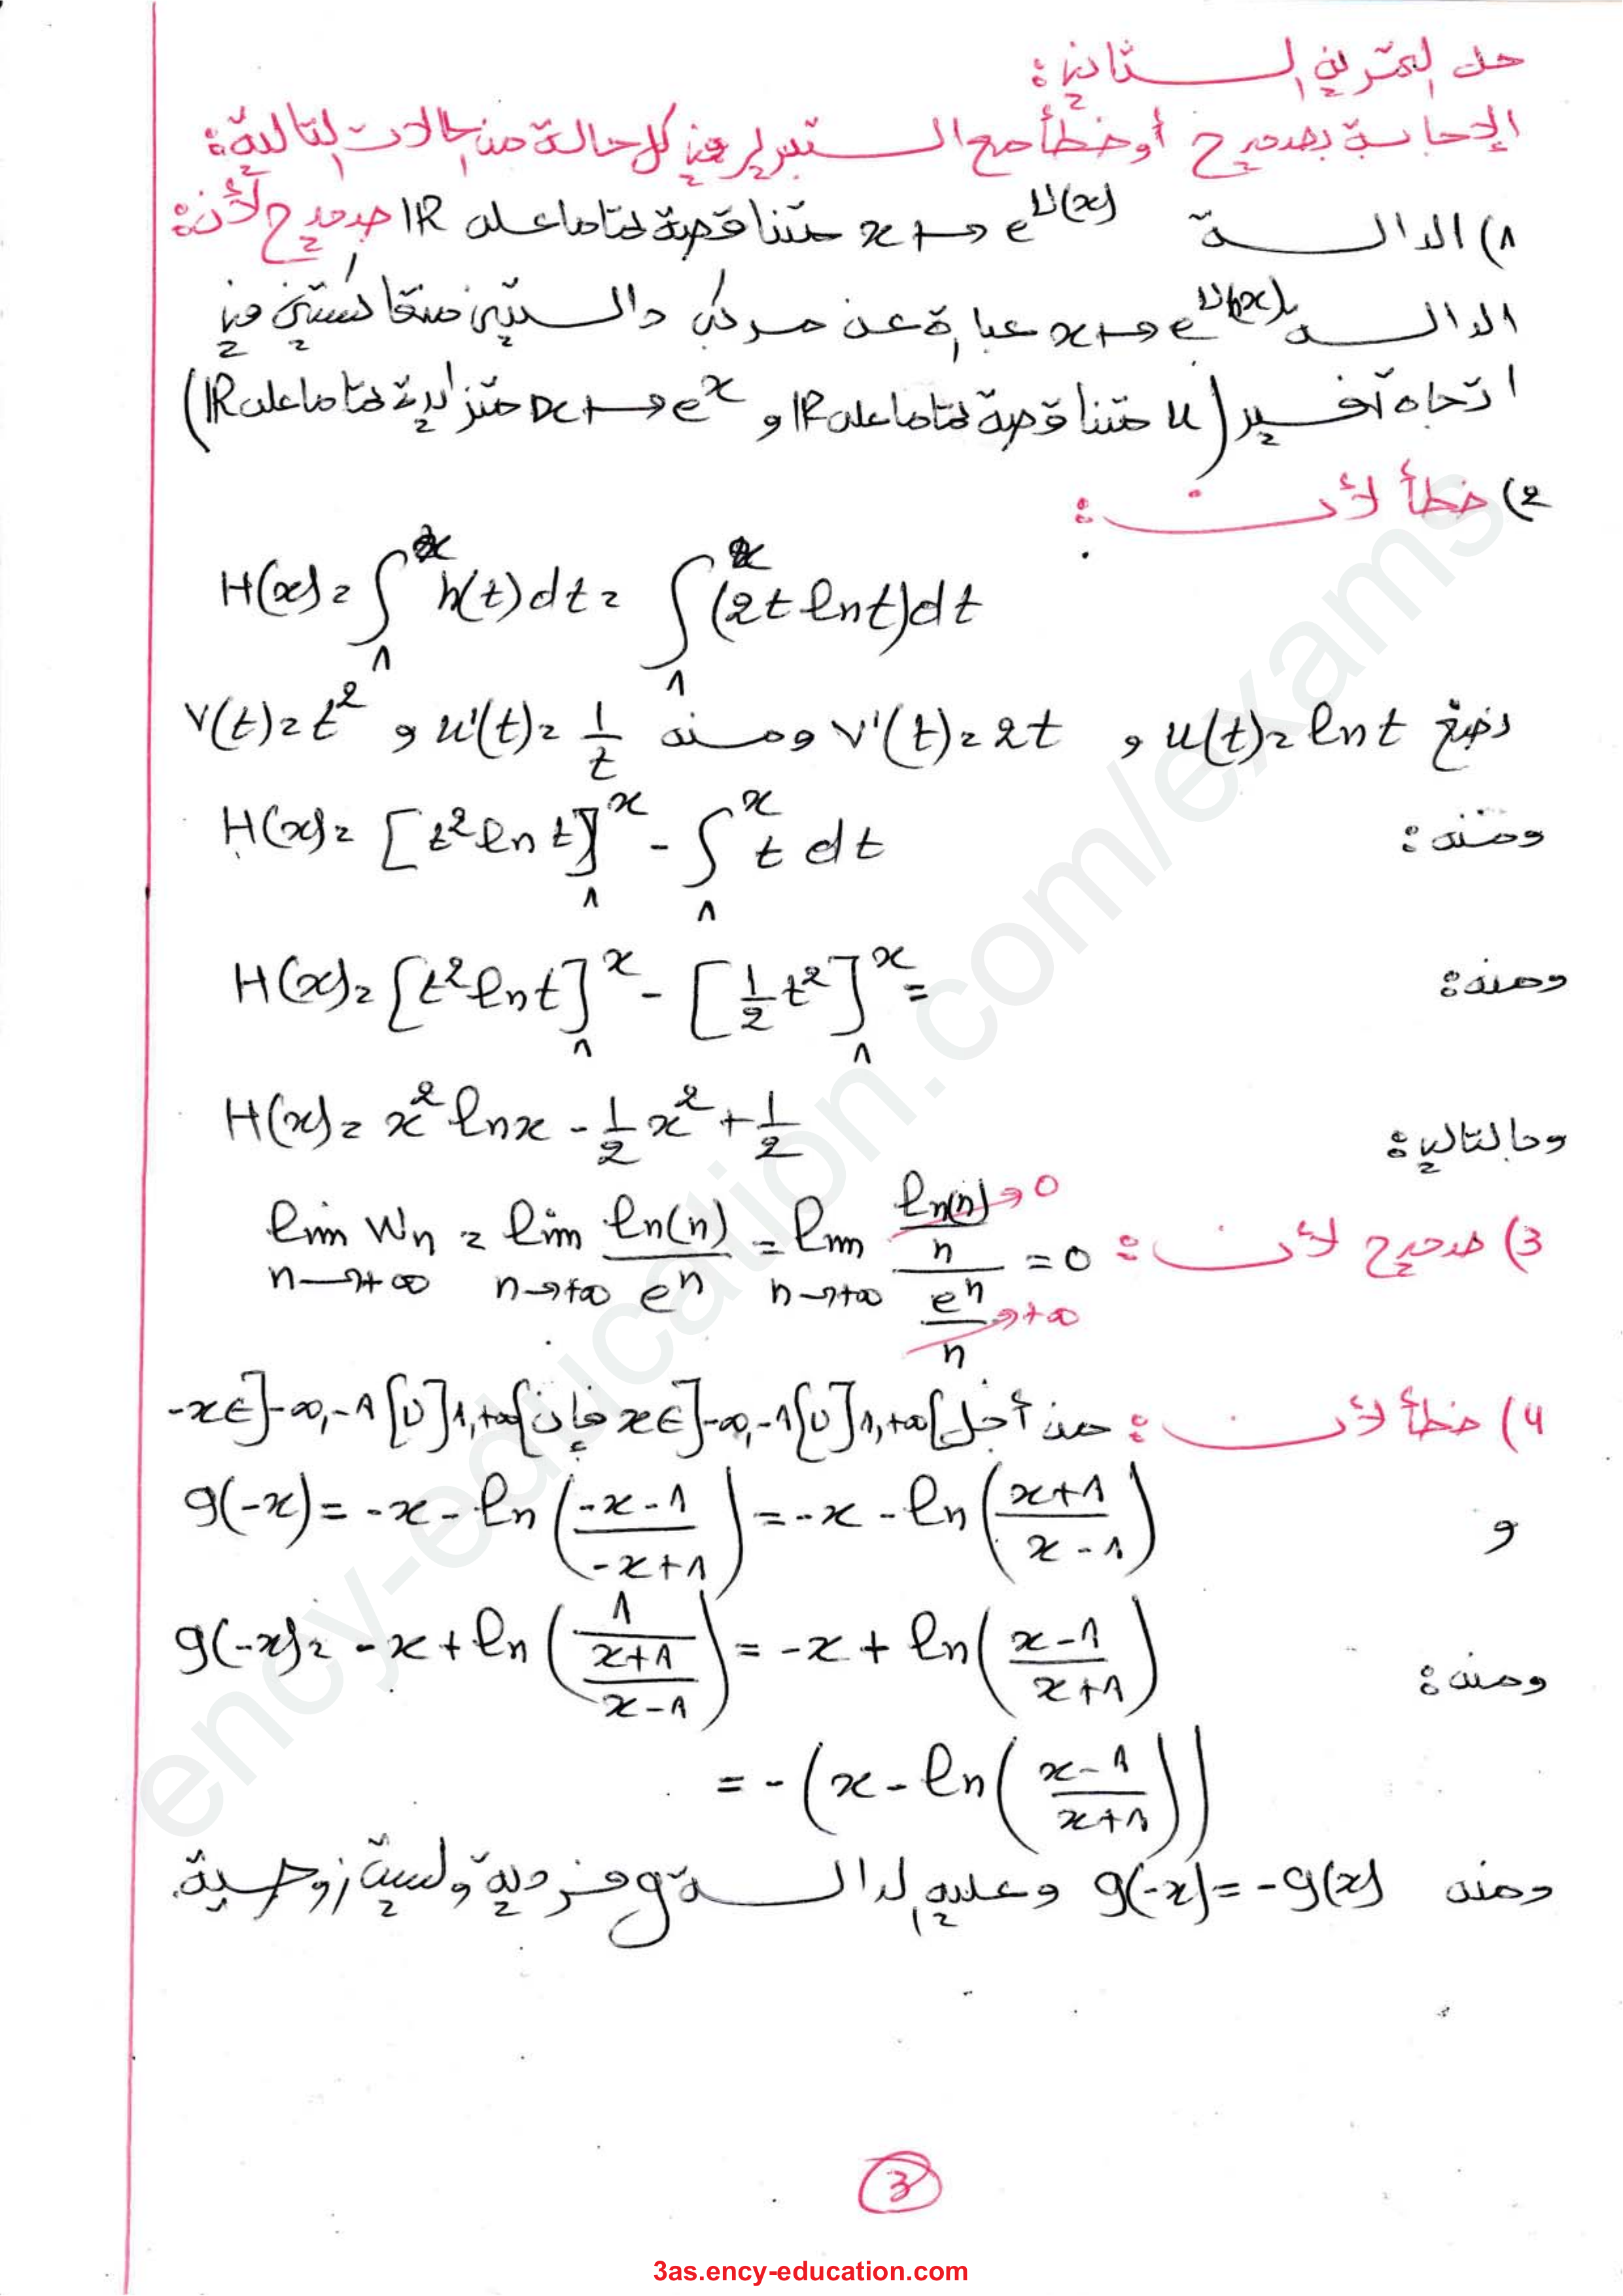 حل التمرين الثاني:
الإجابة بصحيح أو خطأ مع التبرير في كل حالة من الحالات التالية:
1) الدالة x ↦ e^{u(x)} متناقصة تماما على ℝ صحيح لأن:
الدالة x ↦ e^{u(x)} عبارة عن مركب دالتين متعاكستين في
اتجاه تغير (u متناقصة تماما على ℝ و x ↦ e^x متزايدة تماما على ℝ)
2) خطأ لأن:
H(x) = ∫_1^x h(t)dt = ∫_1^x (2t ln t)dt
نضع u(t) = ln t و v'(t) = 2t ومنه u'(t) = 1/t و v(t) = t^2
ومنه: H(x) = [t^2 ln t]_1^x - ∫_1^x t dt
ومنه: H(x) = [t^2 ln t]_1^x - [1/2 t^2]_1^x =
وبالتالي: H(x) = x^2 ln x - 1/2 x^2 + 1/2
3) صحيح لأن: lim_{n→+∞} W_n = lim_{n→+∞} ln(n)/e^n = lim_{n→+∞} (ln(n)/n →0)/(e^n/n →+∞) = 0
4) خطأ لأن: من أجل x∈]-∞,-1[∪]1,+∞[ فإن -x∈]-∞,-1[∪]1,+∞[
و g(-x) = -x - ln((-x-1)/(-x+1)) = -x - ln((x+1)/(x-1))
ومنه: g(-x) = -x + ln(1/((x+1)/(x-1))) = -x + ln((x-1)/(x+1))
= -(x - ln((x-1)/(x+1)))
ومنه g(-x) = -g(x) وعليه الدالة g فردية وليست زوجية.
3
3as.ency-education.com
ency-education.com/exams